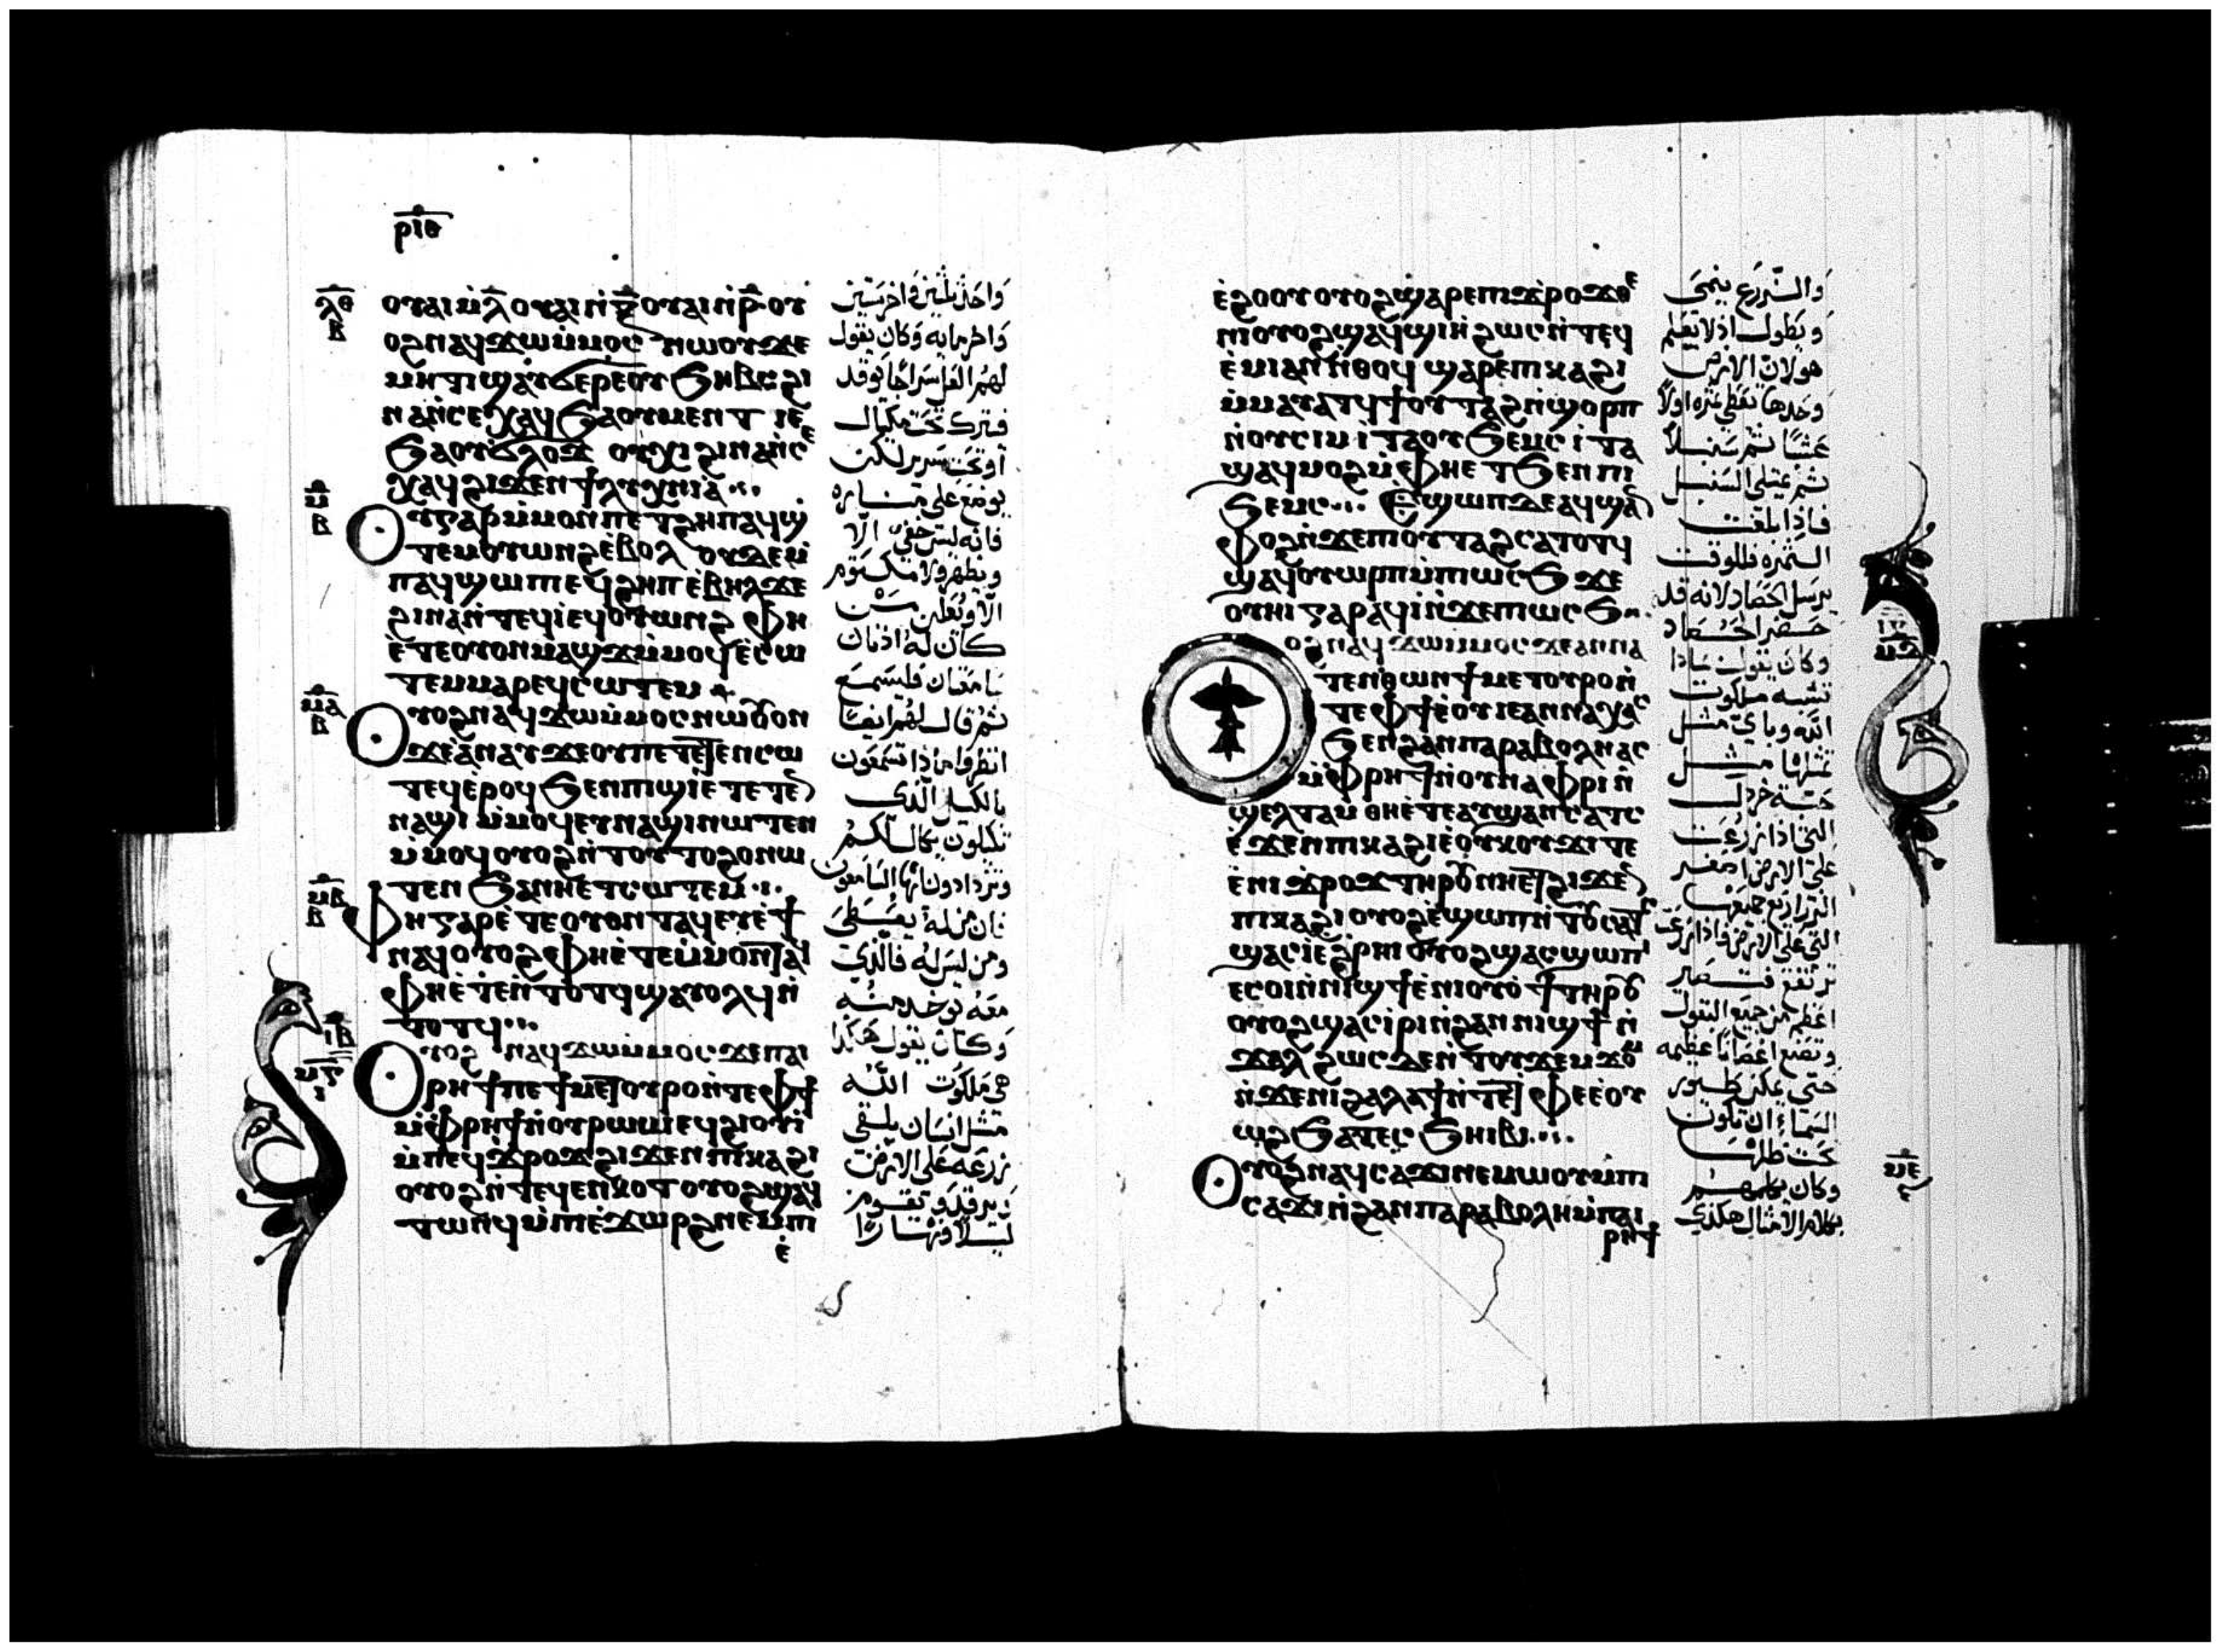 ⲣⲓⲑ
ⲗⲑ
ⲃ
ⲟⲩⲁⲓ ⲙ̇ⲗ̅ ⲟⲩⲁⲓ ⲛ̇ⲝ̅ ⲟⲩⲁⲓ ⲛ̇ⲣ̅ ⲟⲩ
ⲟϩ ⲛⲁϥϫⲱ ⲙ̇ⲙⲟⲥ ⲛⲱⲟⲩ ϫⲉ
ⲙⲏⲧⲓ ϣⲁⲩϭⲉⲣⲉ ⲟⲩϧⲏⲃⲥ ϩⲓ
ⲛⲁ ⲛ̇ⲥⲉⲭⲁϥ ϧⲁ ⲟⲩⲙⲉⲛⲧ ⲓⲉ
ϧⲁ ⲟⲩϭⲗⲟϫ ⲟⲩⲭⲓ ϩⲓⲛⲁ ⲛ̇ⲥⲉ
ⲭⲁϥ ϩⲓϫⲉⲛ ϯⲗⲩⲭⲛⲓⲁ
ⲙ
ⲃ
ⲟⲩ ⲅⲁⲣ ⲙ̇ⲙⲟⲛ ⲡⲉⲧϩⲏⲡ ⲁϥϣ̇
ⲧⲉⲙⲟⲩⲱⲛϩ ⲉ̇ⲃⲟⲗ ⲟⲩⲇⲉ ⲙ̇
ⲡⲁϥϣⲱⲡⲓ ⲉϥϩⲏⲡ ⲉ̇ⲃⲏⲗ ϫⲉ
ϩⲓⲛⲁ ⲛ̇ⲧⲉϥⲓ ⲉϥⲟⲩⲱⲛϩ ⲫⲏ
ⲉ̇ⲧⲉ ⲟⲩⲟⲛ ⲙⲁϣϫ ⲙ̇ⲙⲟϥ ⲉ̇ⲥⲱ
ⲧⲉⲙ ⲙⲁⲣⲉϥⲥⲱⲧⲉⲙ
ⲙⲁ
ⲃ
ⲟⲩⲟϩ ⲛⲁϥϫⲱ ⲙ̇ⲙⲟⲥ ⲛⲱⲟⲩ ⲟⲛ
ϫⲉ ⲁ̇ⲛⲁⲩ ϫⲉ ⲟⲩ ⲡⲉⲧⲉⲧⲉⲛⲥⲱ
ⲧⲉⲙ ⲉ̇ⲣⲟϥ ϧⲉⲛ ⲡⲓϣⲓ ⲉ̇ⲧⲉⲧⲉⲛ
ⲛⲁϣⲓ ⲙ̇ⲙⲟϥ ⲉⲩⲛⲁϣⲓ ⲛⲱⲧⲉⲛ
ⲙ̇ⲙⲟϥ ⲟⲩⲟϩ ⲛ̇ⲧⲟⲩⲧⲟϩⲟ ⲛⲱ
ⲧⲉⲛ ϧⲁ ⲛⲏⲉⲧⲥⲱⲧⲉⲙ
ⲙⲃ
ⲃ
ⲫⲏ ⲅⲁⲣ ⲉ̇ⲧⲉ ⲟⲩⲟⲛ ⲛⲧⲁϥ ⲉⲩⲉ̇ϯ
ⲛⲁϥ ⲟⲩⲟϩ ⲫⲏ ⲉ̇ⲧⲉ ⲙ̇ⲙⲟⲛ ⲛⲧⲁϥ
ⲫⲏ ⲉ̇ⲧⲉⲛ̇ⲧⲟⲧϥ ϣⲁⲩⲟⲗϥ ⲛ̇
ⲧⲟⲧϥ
ⲓⲃ
ⲙⲅ
ⲓ
ⲟⲩⲟϩ ⲛⲁϥϫⲱ ⲙ̇ⲙⲟⲥ ϫⲉ ⲡⲁⲓ
ⲣⲏϯ ⲡⲉ ϯⲙⲉⲧⲟⲩⲣⲟ ⲛ̇ⲧⲉ ⲫϯ
ⲙ̇ⲫⲣⲏϯ ⲛ̇ⲟⲩⲣⲱⲙⲓ ⲉϥϩⲓⲟⲩⲓ̇
ⲙ̇ⲡⲉϥϫⲣⲟϫ ϩⲓϫⲉⲛ ⲡⲓⲕⲁϩⲓ
ⲟⲩⲟϩ ⲛ̇ⲧⲉϥⲉⲛⲕⲟⲧ ⲟⲩⲟϩ ϣⲁϥ
ⲧⲱⲛϥ ⲙ̇ⲡⲓⲉ̇ϫⲱⲣϩ ⲛⲉⲙ ⲡⲓ
ⲉ̇
وَاحد بثلثين وَاخر بستين
وَاخر بمايه وَكان يقول
لهُم العل سَراجًا يوقد
فيترك تحت مكيال
اَو تحت سَرير لكن
يوضع على منــاره
فانه ليسَ خفيٌ الّا
ويظهر ولا مكـتوم
الّا ويُعلن مـَـن
كاَن لهُ اذنان
سَامعَان فليسمَـع
ثمُ قاَل لهُم ايضًا
انظرُوا ماذا تسَمعُون
بالكَيل الّذي
تكيلون يكال لكُم
وتزدادون ايّها السَامعُون
فان من لهُ يعَــطَى
ومن ليسَ لهُ فالّذي
معَهُ يوخذ منـُه
وَكـَان يقول هَكذا
هي مَلكوُت اللّه
مثل انسَان يلـقي
زرعَه عَلى الارض
وَيرقد وَيقــوم
ليــلاً ونهـَـارًا
ⲉ̇ϩⲟⲟⲩ ⲟⲩⲟϩ ϣ̇ⲁⲣⲉ ⲡⲓϫⲣⲟϫ ⲫⲉ
ⲣⲓ ⲟⲩⲟϩ ϣⲁϥϣⲓⲏ ϩⲱⲥ ⲛ̇ⲧⲉϥ
ⲉ̇ⲙⲓ ⲁⲛ ⲛ̇ⲑⲟϥ ϣⲁⲣⲉ ⲡⲓⲕⲁϩⲓ
ⲙ̇ⲙⲁⲩⲁⲧϥ ϯⲟⲩⲧⲁϩ ⲛ̇ϣⲟⲣⲡ
ⲛ̇ⲟⲩⲥⲓⲙ ⲓⲧⲁ ⲟⲩϧⲉⲙⲥ ⲓⲧⲁ
ϣⲁϥⲙⲟϩ ⲛ̇ϫⲉ ⲫⲏⲉⲧϧⲉⲛ ⲡⲓ
ϧⲉⲙⲥ ⲉϣⲱⲡ ⲇⲉ ⲁϥϣⲁⲛ
ⲫⲟϩ ⲛ̇ϫⲉ ⲡⲓⲟⲩⲧⲁϩ ⲥⲁⲧⲟⲧϥ
ϣⲁϥⲟⲩⲱⲣⲡ ⲙ̇ⲡⲓⲱⲥϧ ϫⲉ
ⲟⲩⲏⲓ ⲅⲁⲣ ⲁϥⲓ̇ ⲛ̇ϫⲉ ⲡⲓⲱⲥϧ
ⲓⲅ
ⲙⲇ
ⲟϩ ⲛⲁϥϫⲱ ⲙ̇ⲙⲟⲥ ϫⲉ ⲁⲛⲛⲁ
ⲧⲉⲛⲑⲱⲛ ϯⲙⲉⲧⲟⲩⲣⲟ ⲛ̇
ⲧⲉ ⲫϯ ⲉ̇ⲟⲩ ⲓⲉ ⲁⲛⲛⲁⲭⲁⲥ
ϧⲉⲛ ϩⲁⲛ ⲡⲁⲣⲁⲃⲟⲗⲏ ⲁⲥ
ⲙ̇ⲫⲣⲏϯ ⲛ̇ⲟⲩⲛⲁⲫⲣⲓ ⲛ̇
ϣⲉⲗⲧⲁⲙ ⲑⲏ ⲉ̇ⲧⲉ ⲁⲩϣⲁⲛⲥⲁⲧⲥ
ⲉ̇ϫⲉⲛ ⲡⲓⲕⲁϩⲓ ⲉ̇ⲟⲩⲕⲟⲩϫⲓ ⲧⲉ
ⲉ̇ⲛⲓϫⲣⲟϫ ⲧⲏⲣⲟⲩ ⲛⲏⲉⲧϩⲓϫⲉⲛ
ⲡⲓⲕⲁϩⲓ ⲟⲩⲟϩ ⲉ̇ϣⲱⲡ ⲛ̇ⲧⲟⲩⲥⲁⲧⲥ
ϣⲁⲥⲓ̇ ⲉ̇ϩⲣⲏⲓ ⲟⲩⲟϩ ϣⲁⲥϣⲱⲡⲓ
ⲉⲥⲟⲓ ⲛ̇ⲛⲓϣϯ ⲉ̇ⲛⲓⲟⲩⲟϯ ⲧⲏⲣⲟⲩ
ⲟⲩⲟϩ ϣⲁⲥⲓ̇ⲣⲓ ⲛ̇ϩⲁⲛⲛⲓϣϯ ⲛ̇
ϫⲁⲗ ϩⲱⲥⲇⲉ ⲛ̇ⲧⲟⲩϫⲉⲙϫⲟⲙ
ⲛ̇ϫⲉ ⲛⲓϩⲁⲗⲁϯ ⲛ̇ⲧⲉ ⲧⲫⲉ ⲉ̇ⲟⲩ
ⲱϩ ϧⲁ ⲧⲉⲥϧⲏⲓⲃⲓ
ⲙⲉ
ⲟⲩⲟϩ ⲛⲁϥⲥⲁϫⲓ ⲛⲉⲙⲱⲟⲩ ⲙ̇ⲡⲓ
ⲥⲁϫⲓ ⲛ̇ϩⲁⲛⲡⲁⲣⲁⲃⲟⲗⲏ ⲙ̇ⲡⲁⲓ
ⲣⲏϯ
وَالــزّرَع ينمىَ
وَيطول اذ لا يعلم
هو لان الارض
وَحدها تعُطي ثمره اولاً
عَشبًا ثم سَنبــلاً
ثم يمتلى السَنبـل
فــاذِا بلغَت
الثمره فللوقت
يرسَل الحَصاد لانه قد
حَــضر الحَــصَاد
وكان يقول بمَاذا
نشبه ملكوت
اللّه وباي مثـل
نمثلها مثــل
حَبــّة خردل
التي اذا زرعَت
علىَ الارض اصغر
الزراريع جميعَها
التي على الارض فاذا زرعت
ترتفع فتـصَير
اعظم من جميعَ البقول
وتصنع اغصَانًا عظيمه
حَتى يمكن طـيور
السَماء ان تكون
تحت ظلهــا
وَكان يكلمهـُم
بكلام الامثال هكذي